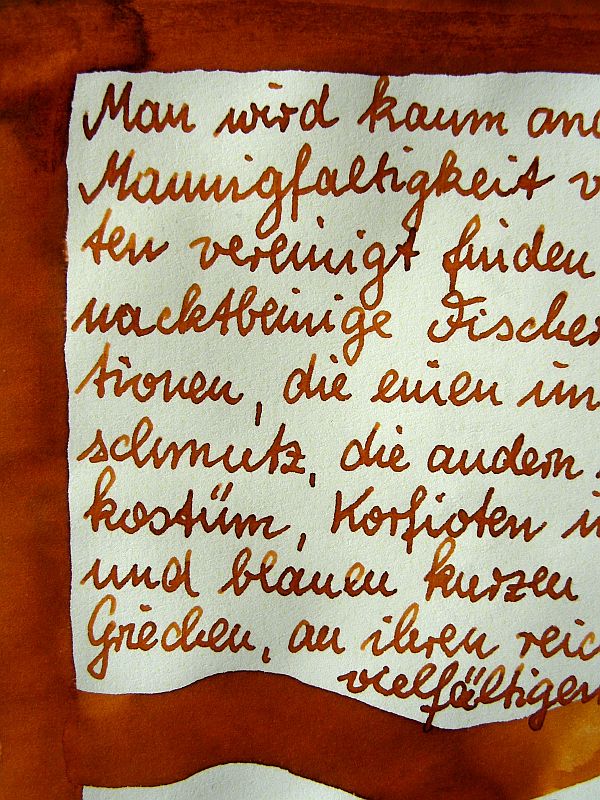 Man wird kaum and
Mannigfaltigkeit v
ten vereinigt finden
nacktbeinige Fischer
tionen, die einen im
schmutz, die andern
kostüm, Korfioten i
und blauen kurzen
Griechen, an ihren reic
vielfältigen